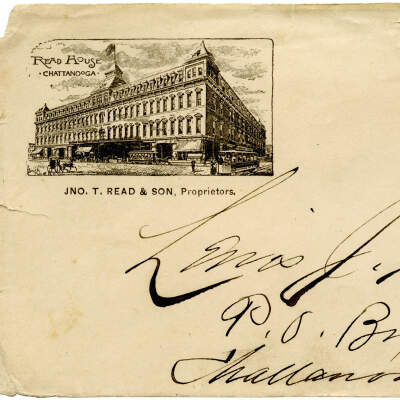 READ HOUSE
· CHATTANOOGA ·
JNO. T. READ & SON, Proprietors.
J.
P. O. B
Chattanoo